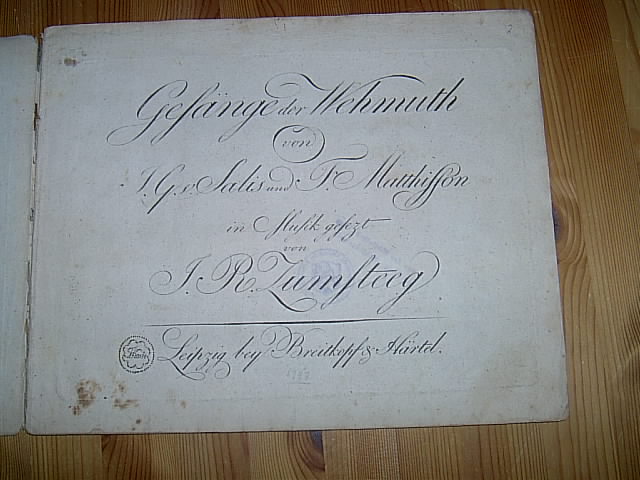 Gesänge der Wehmuth
von
J. G. v. Salis und F. Matthisson
in Musik gesezt
von
J. R. Zumsteeg
Leipzig bey Breitkopf & Härtel.